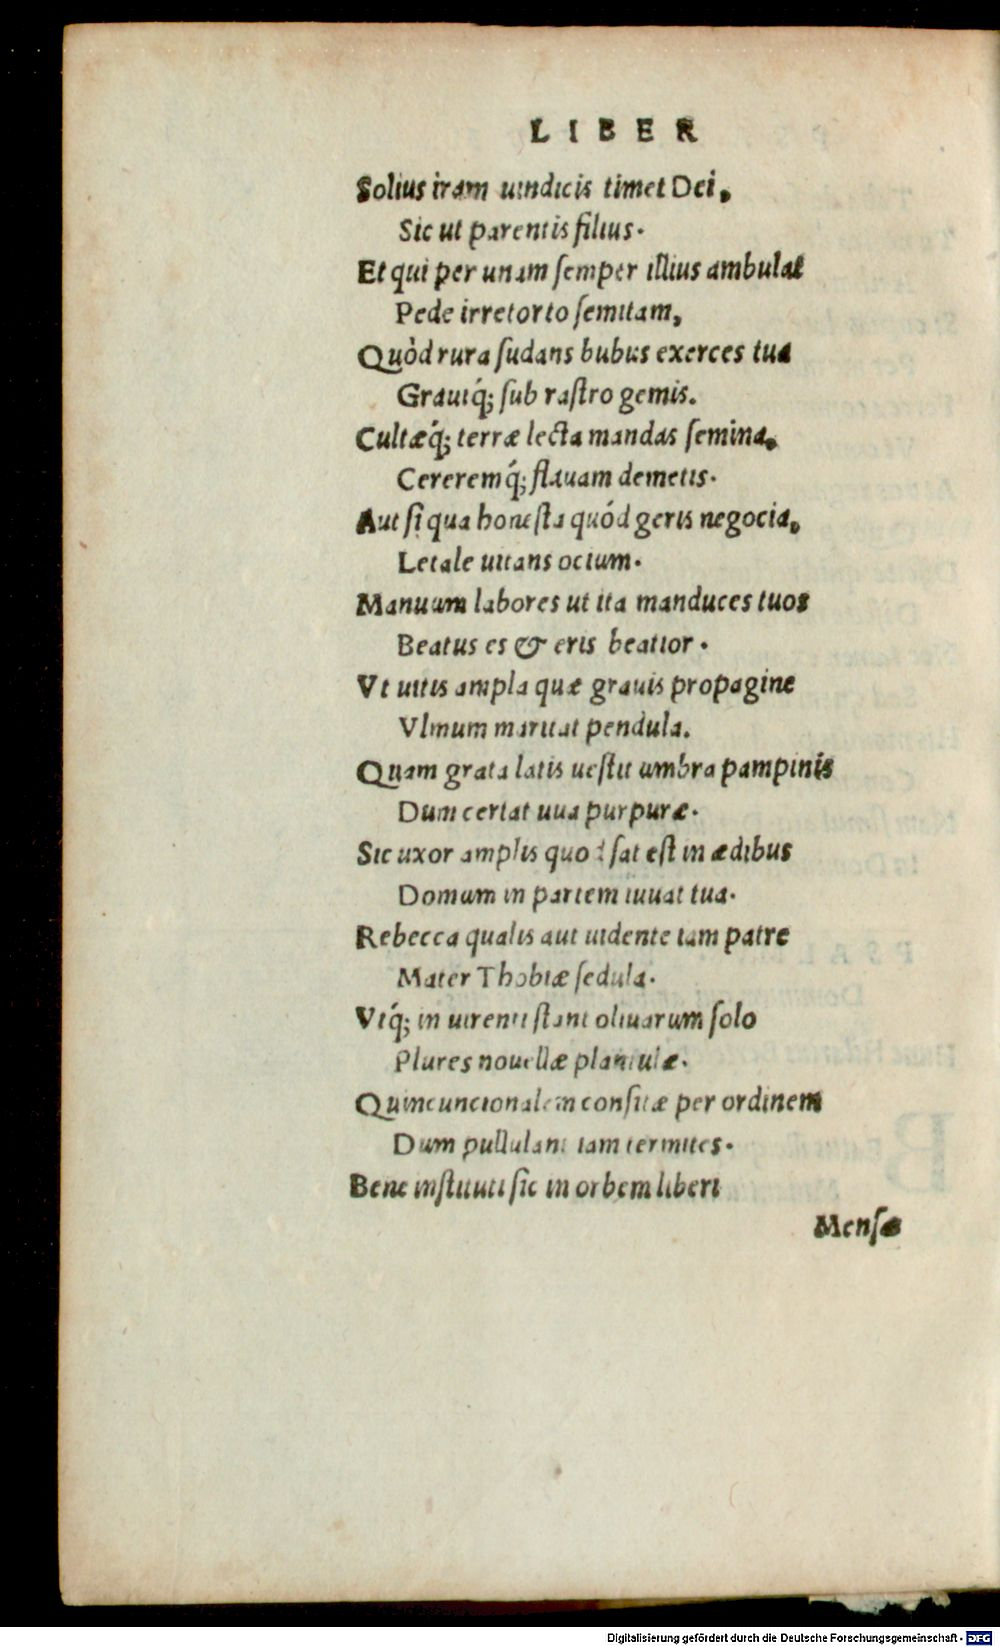 LIBER
Solius iram uindicis timet Dei,
Sic ut parentis filius.
Et qui per unam ſemper illius ambulat
Pede irretorto ſemitam,
Quòd rura ſudans bubus exerces tua
Grauiq́; ſub raſtro gemis.
Cultæq́; terræ lecta mandas ſemina,
Cereremq́; flauam demetis.
Aut ſi qua honeſta quód geris negocia,
Letale uitans ocium.
Manuum labores ut ita manduces tuos
Beatus es & eris beatior.
Vt uitis ampla quæ grauis propagine
Vlmum maritat pendula.
Quam grata latis ueſtit umbra pampinis
Dum certat uua purpuræ.
Sic uxor amplis quod ſat eſt in ædibus
Domum in partem iuuat tua.
Rebecca qualis aut uidente iam patre
Mater Thobiæ ſedula.
Vtq́; in uirenti ſtant oliuarum ſolo
Plures nouellæ plantulæ.
Quincuncionalem conſitæ per ordinem
Dum pullulant iam termites.
Bene inſtituti ſic in orbem liberi
Menſæ
Digitalisierung gefördert durch die Deutsche Forschungsgemeinschaft - DFG